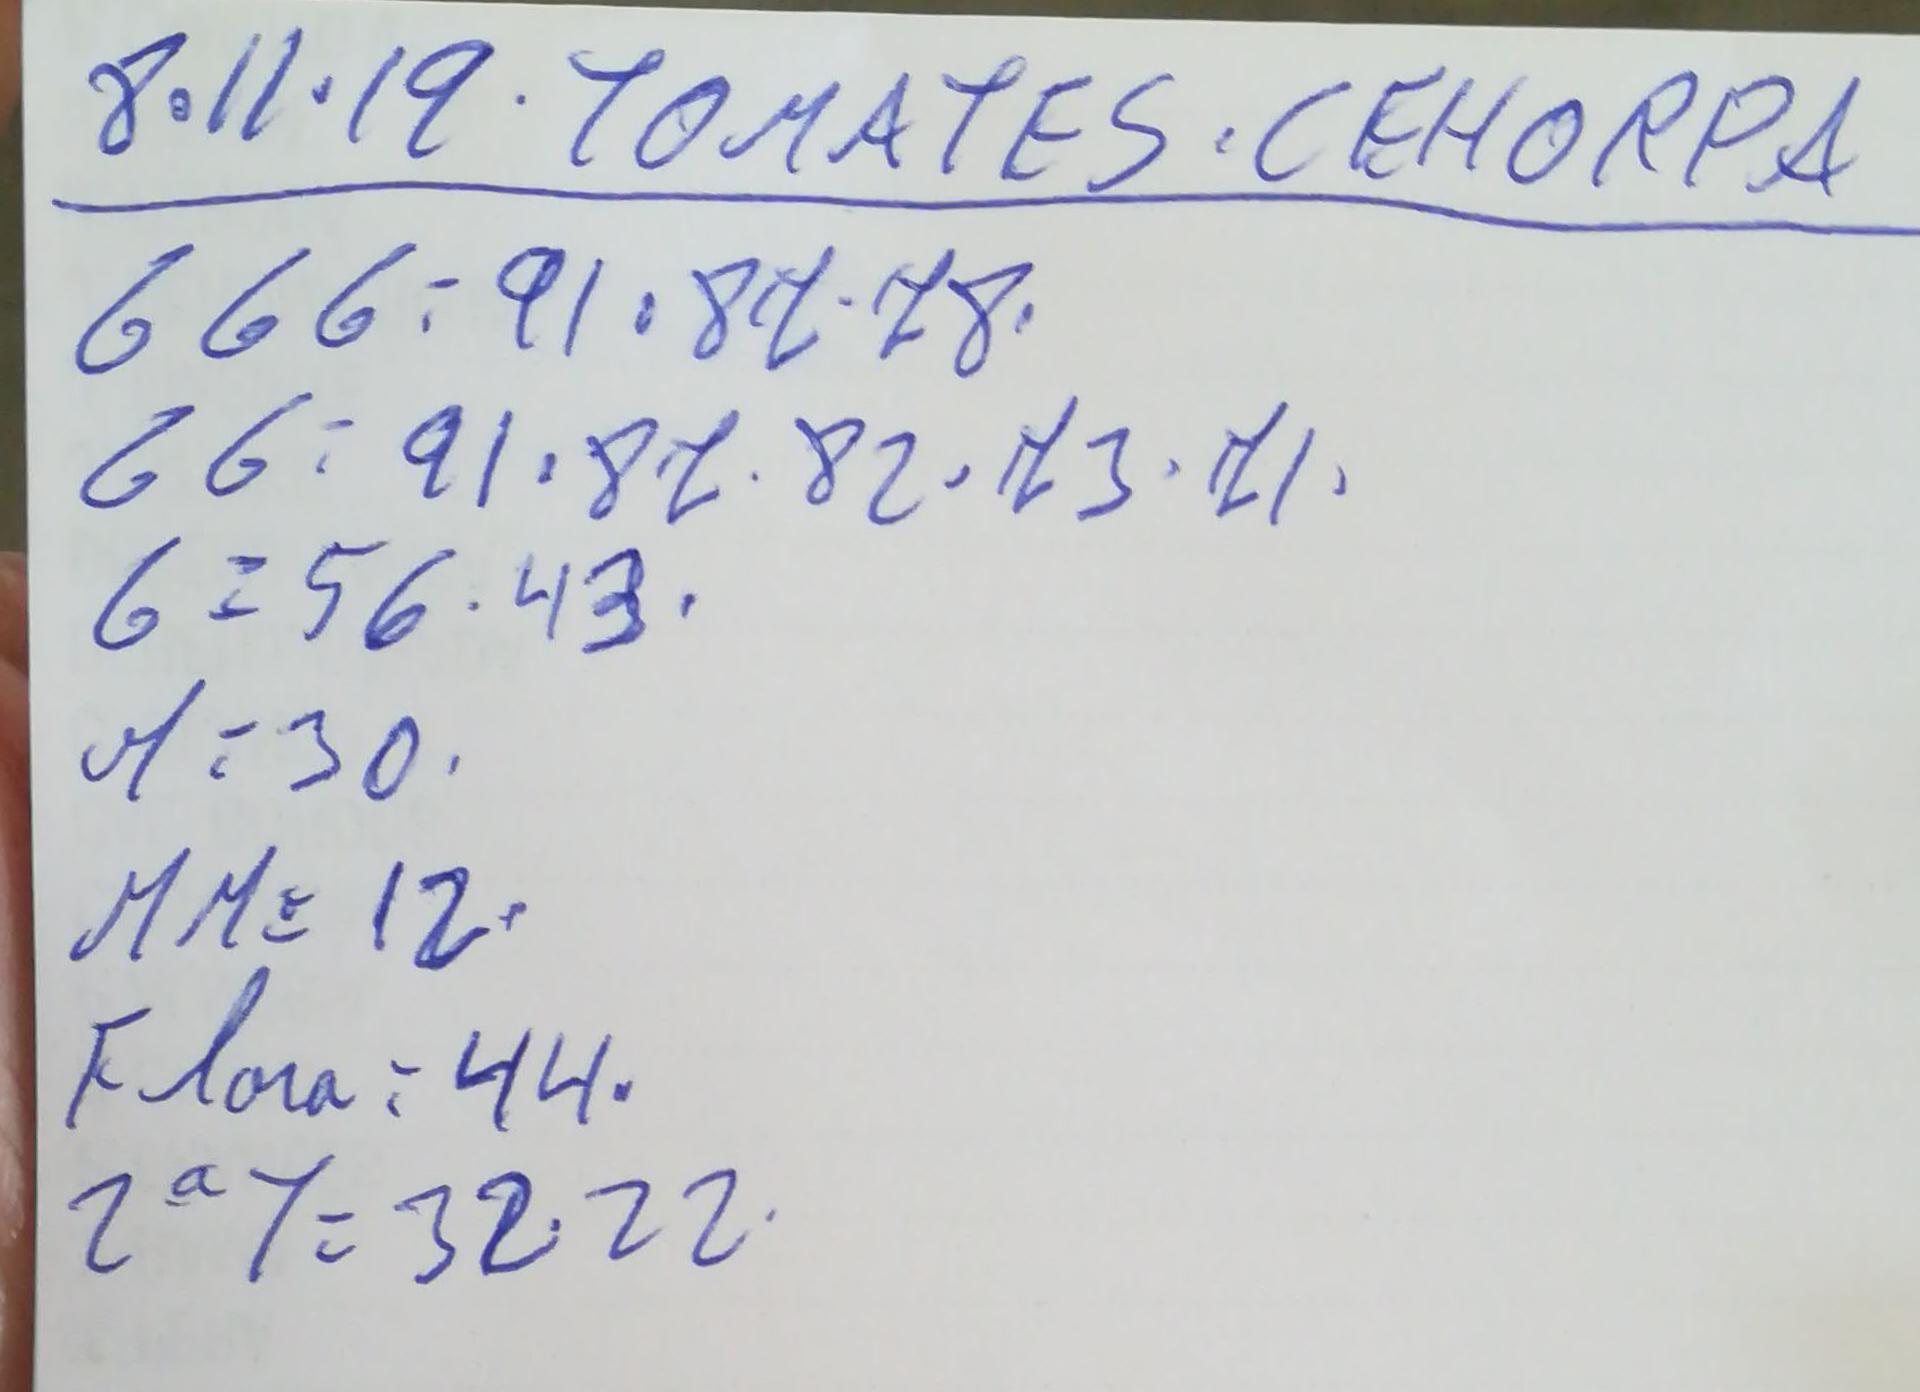 8.11.19. TOMATES. CEHORPA
GGG = 91.87.78.
GG = 91.87.82.73.71.
G = 56.43.
M = 30.
MM = 12.
Flora = 44.
2ª T = 32.22.